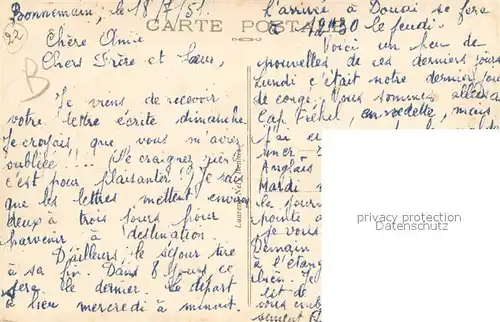 Bonnemain, le 18/7/51.
CARTE POSTALE
22
B
Chère Amie
Chers Frère et Sœur,
Je viens de recevoir
votre lettre écrite dimanche.
Je croyais que vous m'aviez
oubliée !!... (Ne craignez rien
c'est pour plaisanter !) Je sais
que les lettres mettent environ
deux à trois jours pour
parvenir à destination.
D'ailleurs, le séjour tire
à sa fin. Dans 8 jours ce
sera le dernier. Le départ
a lieu mercredi à minuit.
l'arrivée à Douai se fera
à 12H30 le jeudi.
Voici un peu de
nouvelles de ces derniers jours
Lundi c'était notre dernier jour
de congé. Nous sommes allées au
Cap Fréhel, en vedette, mais
j'ai eu
mer
Anglais
Mardi
la journ
pointe
Je vous
Demain
à l'étang
bien. Je
lit de
vous
sement
privacy protection
Datenschutz